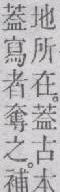 地所在。蓋古本
蓋寫者奪之。補